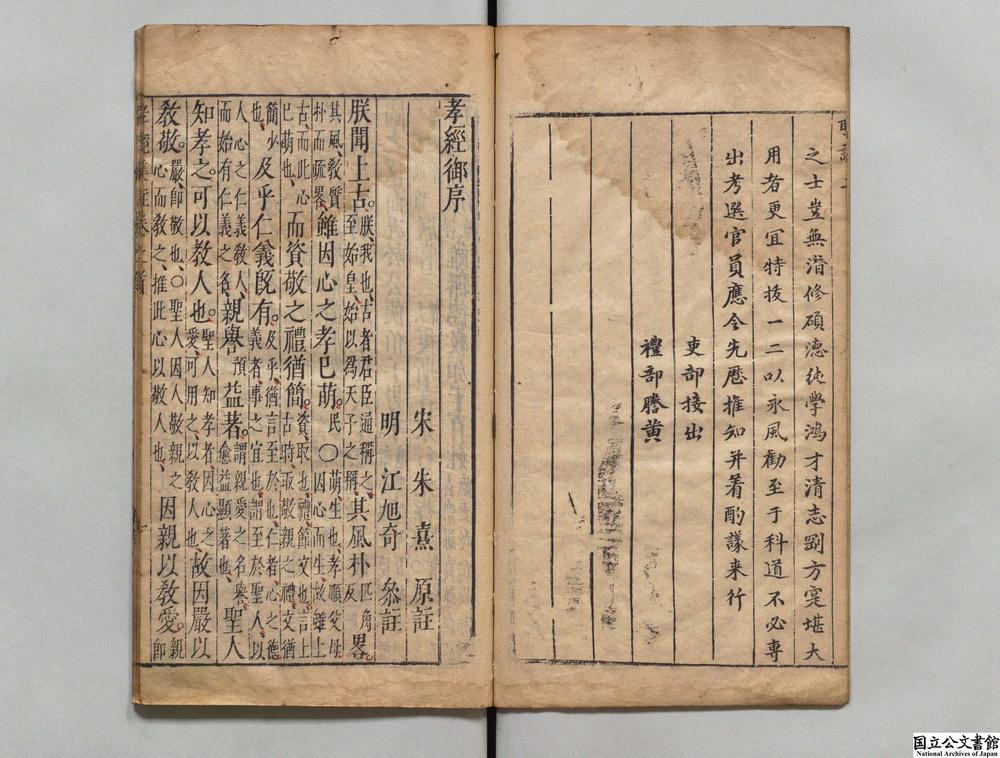 之士豈無潛修碩德絶學鴻才清志剛方寔堪大
用者更冝特抜一二以永風勸至于科道不必專
出考選官員應令先歷推知并着酌議来行
吏部接出
禮部謄黄
孝經御序
宋朱熹原註
明江旭奇叅註
朕聞上古。朕、我也、古者君臣通稱之、至始皇、始以爲天子之稱、其風朴畧。匹角反
其風、敎質朴而疏畧、雖因心之孝已萌。民〇萌生也、孝順父母、因心而生、故雖上
古、而此心已萌也、而資敬之禮猶簡。資、取也、禮、節文也、言上古時、取敬親之禮文猶
簡少也、及乎仁義旣有。及乎、猶言至於也、仁者心之德、義者、事之宜也、謂至於聖人以
人心之仁義敎人、而始有仁義之名、親譽預益著。謂親愛之名譽、愈益顯著也、聖人
知孝之可以敎人也。聖人知孝者、因心之愛、可用之、以敎人也、故因嚴以
敎敬。嚴、即敬也、〇聖人因人敬親之心而敎之、推此心以敬人也、因親以敎愛。親即
国立公文書館
National Archives of Japan